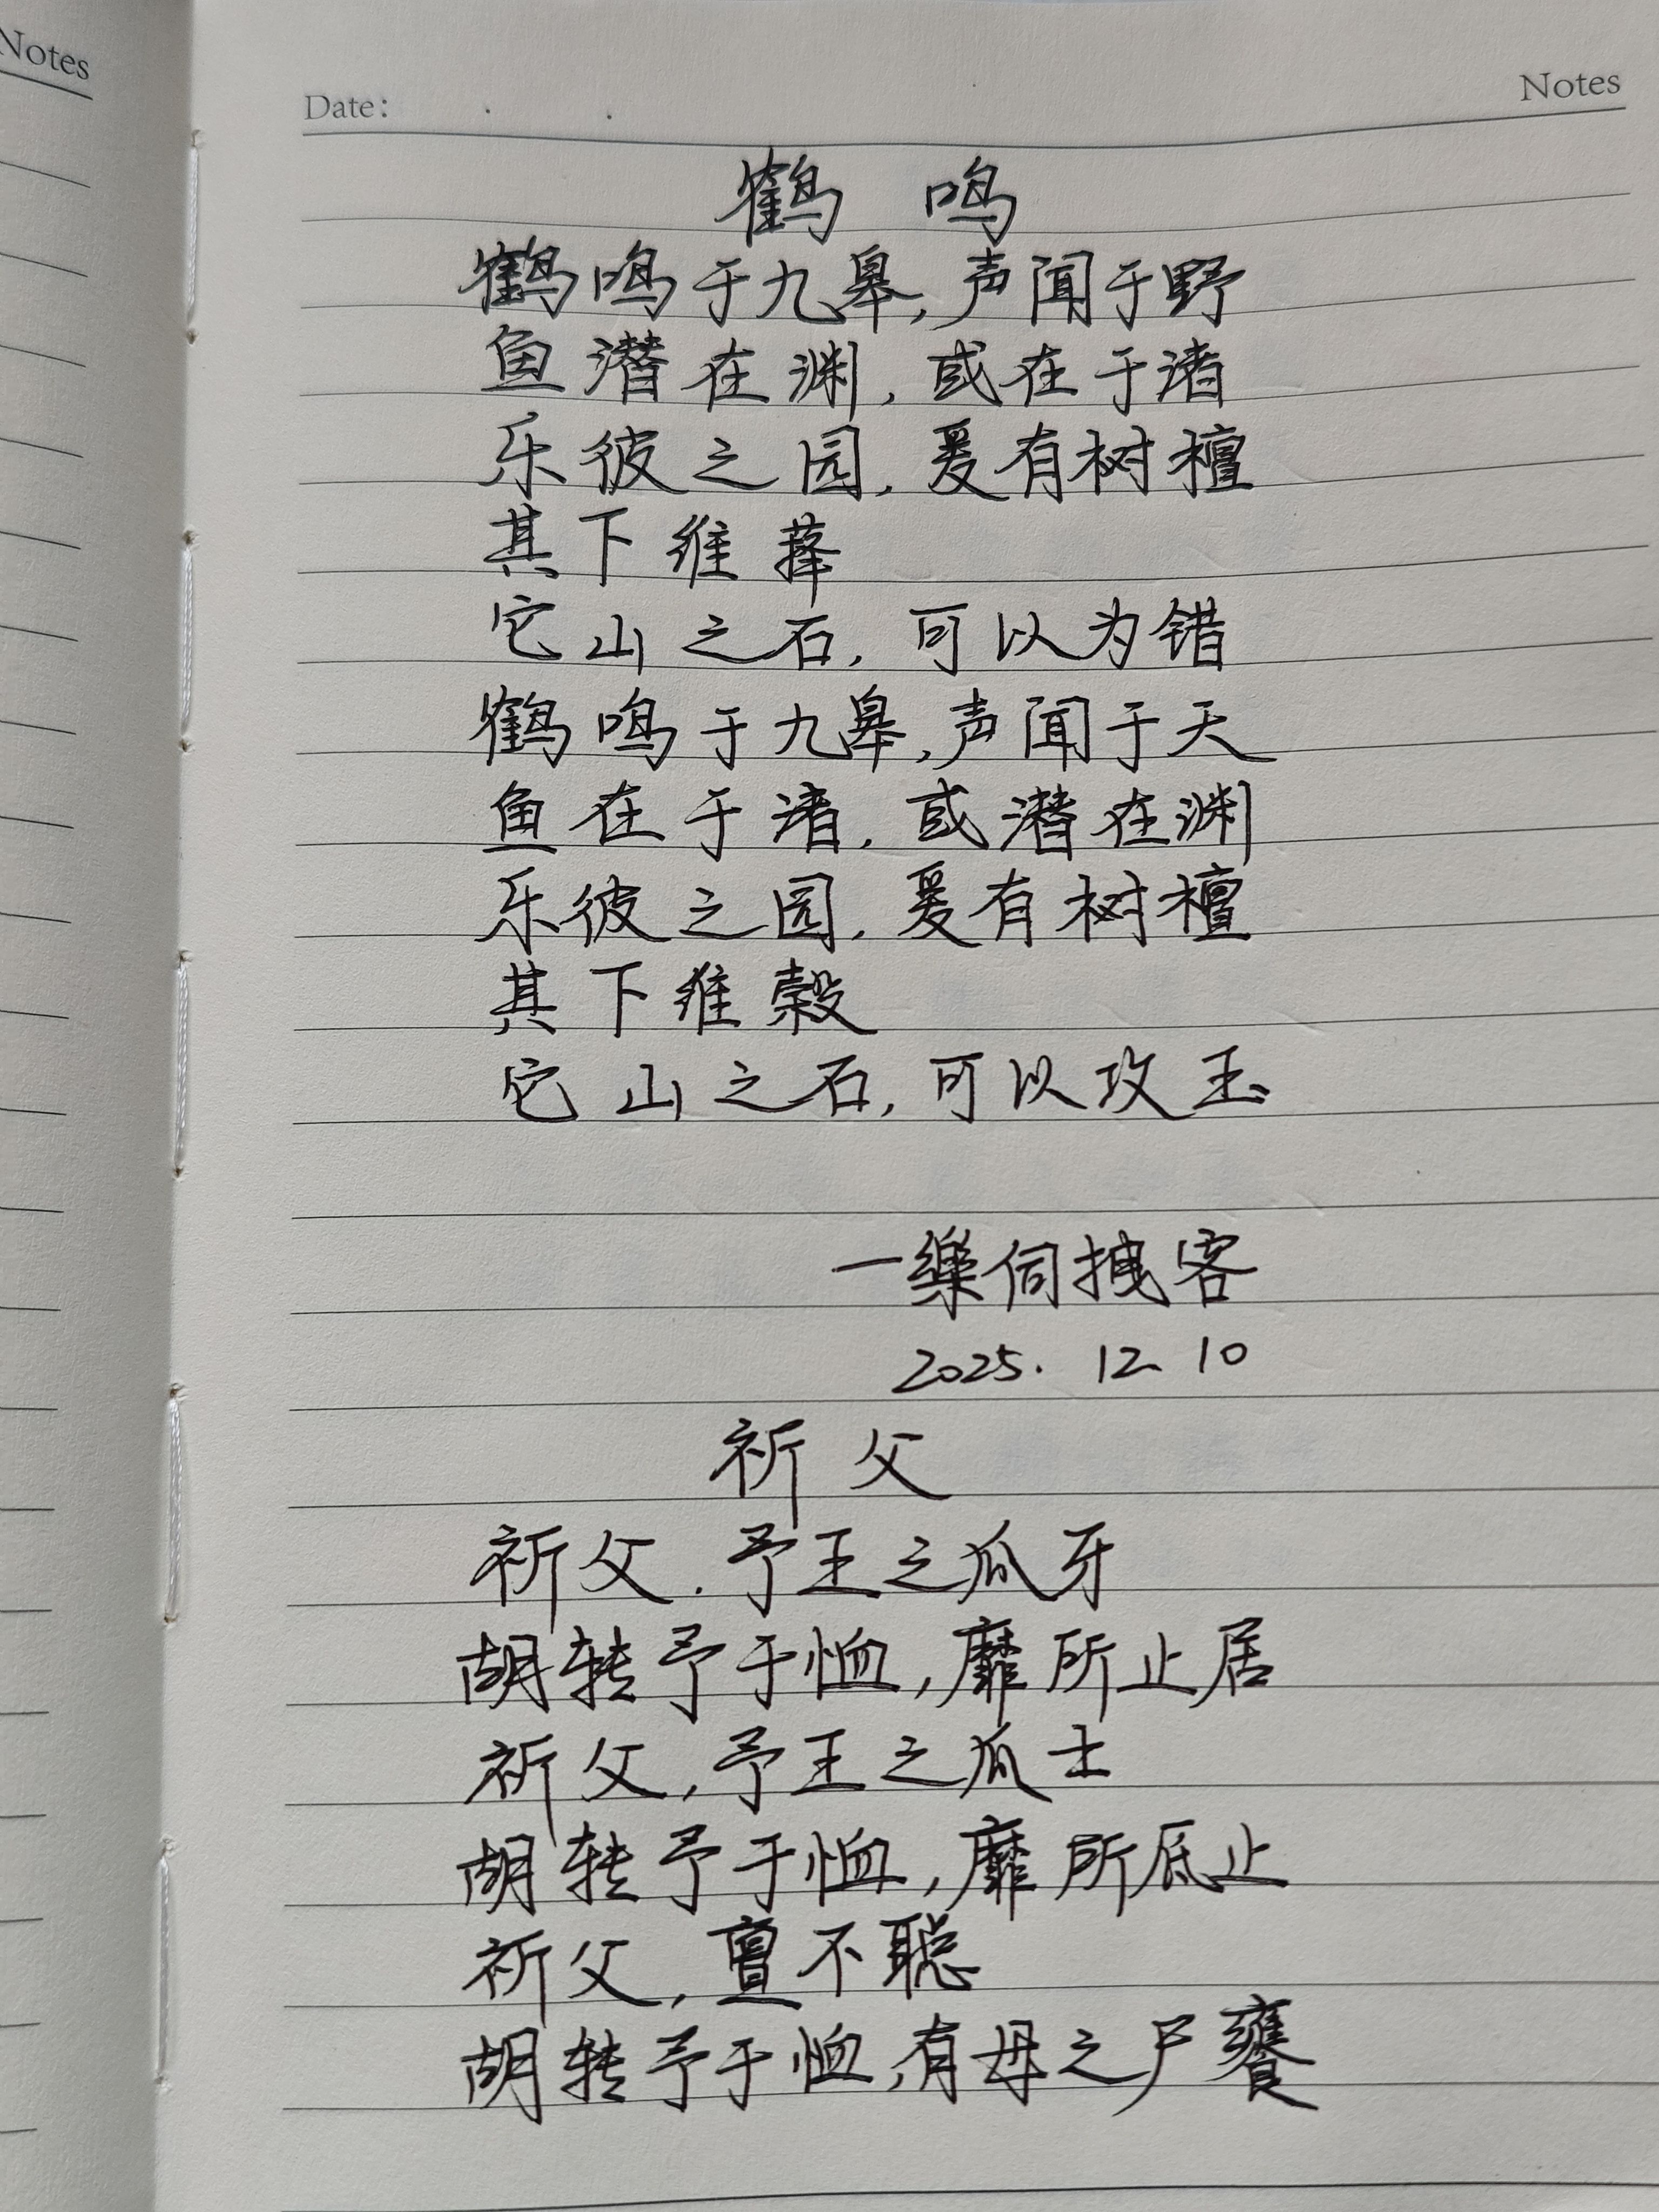 Notes
Date: . .
Notes
鹤 鸣
鹤鸣于九皋,声闻于野
鱼潜在渊,或在于渚
乐彼之园,爰有树檀
其下维萚
它山之石,可以为错
鹤鸣于九皋,声闻于天
鱼在于渚,或潜在渊
乐彼之园,爰有树檀
其下维榖
它山之石,可以攻玉
一樂伺拽客
2025. 12. 10
祈父
祈父.予王之瓜牙
胡转予于恤,靡所止居
祈父,予王之瓜士
胡转予于恤,靡所底止
祈父,亶不聪
胡转予于恤,有母之尸饔